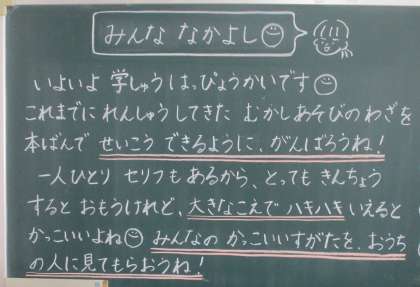 みんな なかよし
いよいよ 学しゅうはっぴょうかいです
これまでに れんしゅうしてきた むかしあそびのわざを
本ばんで せいこう できるように、がんばろうね!
一人ひとり セリフも あるから、とっても きんちょう
すると おもうけれど、大きなこえで ハキハキ いえると
かっこいいよね みんなの かっこいいすがたを、おうち
の人に見てもらおうね!